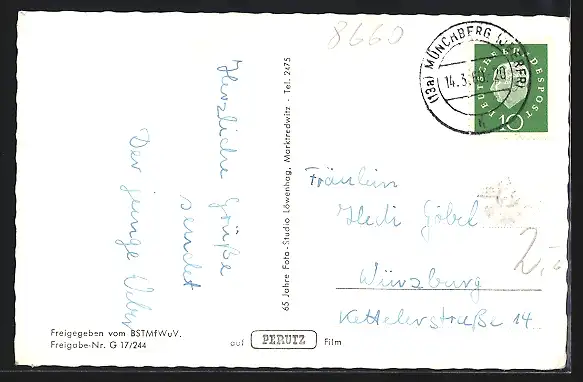 8660
(13a) MÜNCHBERG (OBERFR)
14.3.60
h
DEUTSCHE BUNDESPOST
10
Herzliche Grüße
sendet
Der junge Weber
65 Jahre Foto-Studio Löwenhag, Marktredwitz - Tel. 2475
Fräulein
Hedi Göbel
Würzburg
Kettelerstraße 14
2,-
Freigegeben vom BSTMfWuV.
Freigabe-Nr. G 17/244
auf PERUTZ Film